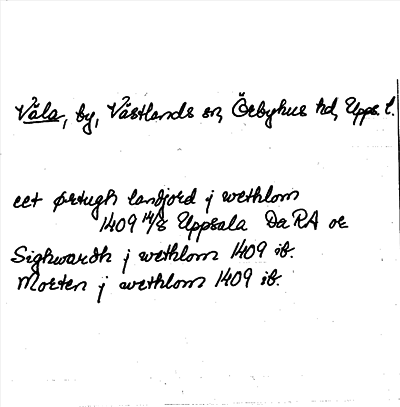 Våla, by, Västlands sn, Örbyhus hd, Upps. l.
eet ørtugh landjord j wethlom
1409 14/8 Uppsala DaRA or
Sighwardh j wethlom 1409 ib.
Morten j wethlom 1409 ib.